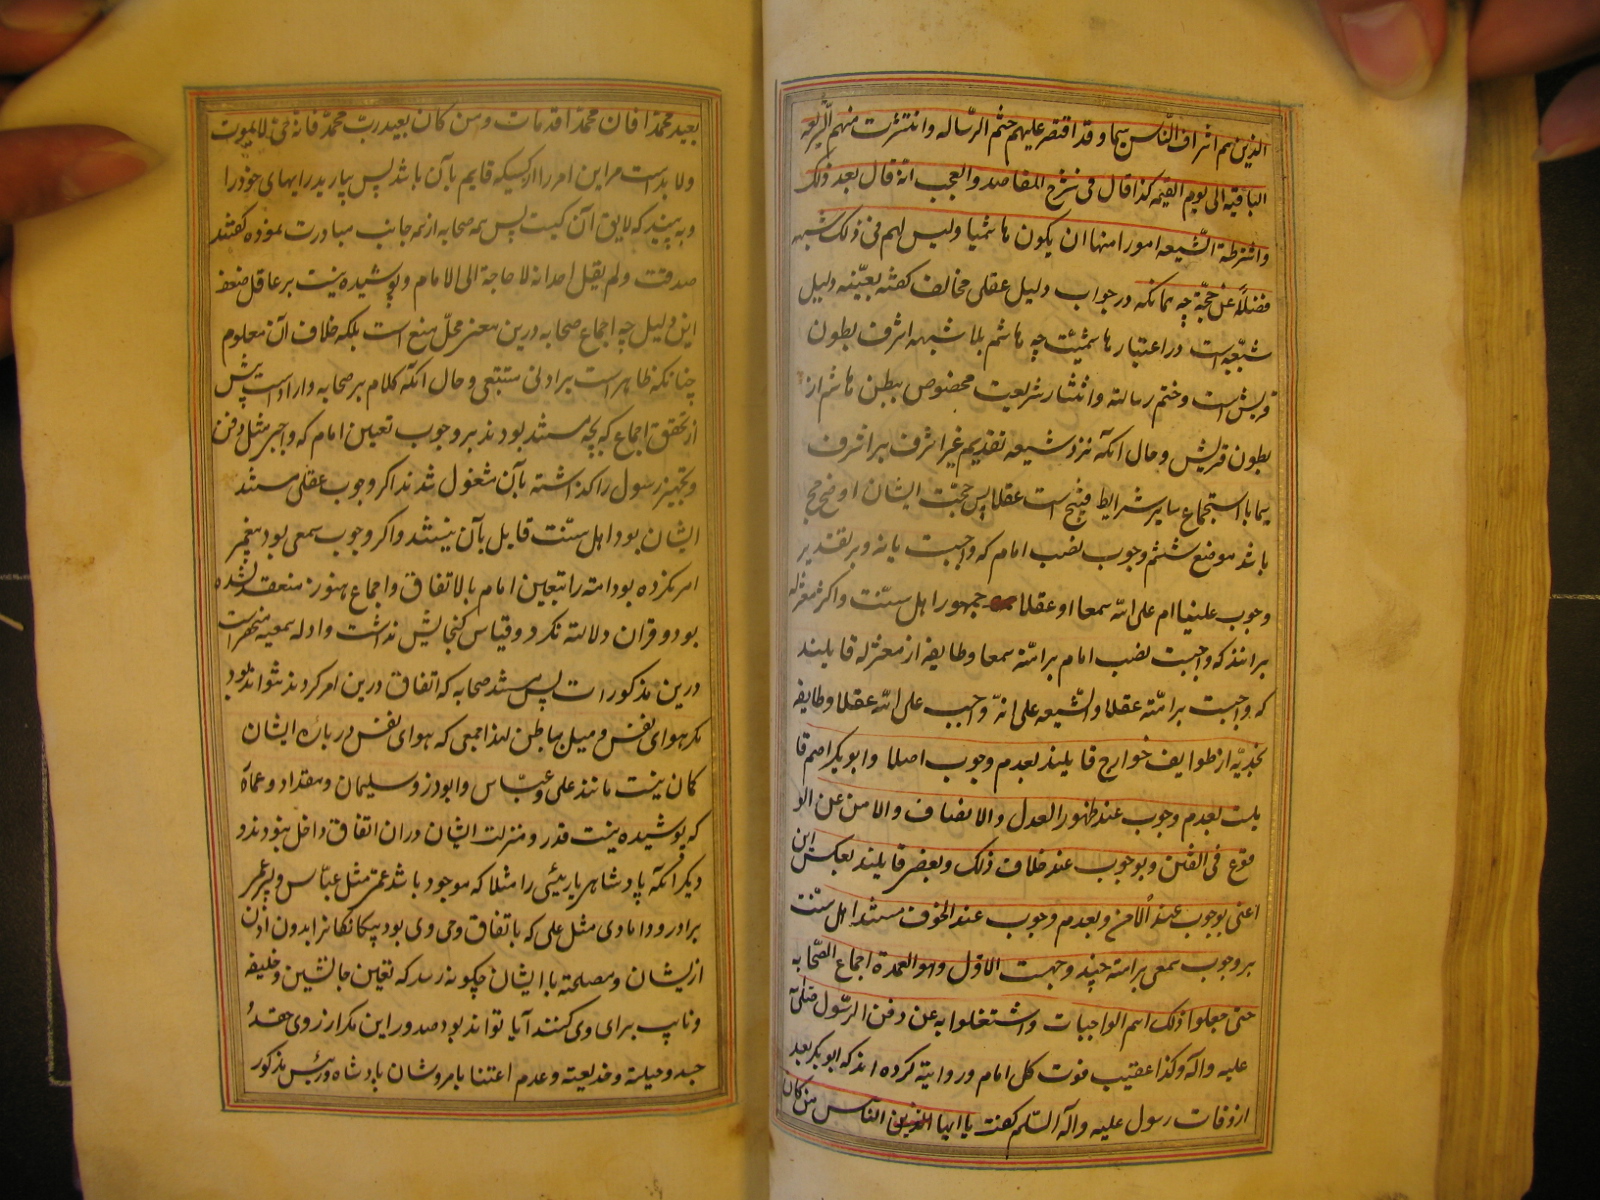 الذین هم اشراف النّاس سیما و قد اقتصر علیهم ختم الرّساله و انتشرت منهم الشّریعه
الباقیة الی یوم القیمه کذا قال فی شرح المقاصد و العجب انّه قال بعد ذلک
و اشترطة الشّیعه امورا منها ان یکون هاشمیا و لیس لهم فی ذلک شبهه
فضلاً عن حجّة چه بمانکه در جواب دلیل عقلی مخالف گفته بعیّنه دلیل
شیعّه است در اعتبار هاشمیّت چه هاشم بلا شبهه اشرف بطون
قریش است و ختم رسالته و انتشار شریعت مخصوص ببطن هاشم از
بطون قریش و حال آنکه نزد شیعه تقدیم غیر اشرف بر اشرف
سیما با استجماع سایر شرایط قبیح است عقلا پس حجّت ایشان اوضح حجج
باشد موضع ششم وجوب نصب امام که واجبست یا نه و بر تقدیر
وجوب علینا ام علی اللّه سمعا او عقلا جمهور اهل سنّت و اکثر معتزله
برانند که واجبست نصب امام بر امّة سمعا و طایفه از معتزله قایلند
که واجبست بر امّته عقلا و الشّیعه علی انّه واجب علی اللّه عقلا و طایفه
نجدیّه از طوایف خوارج قایلند بعدم وجوب اصلا و ابوبکر اصم قا
یلت بعدم وجوب عند ظهور العدل و الانصاف و الامن عن الو
قوع فی الفتن و بوجوب عند خلاف ذلک و بعضی قایلند بعکس این
اعنی بوجوب عند الامن و بعدم وجوب عند الخوف مستند اهل سنّت
بر وجوب سمعی بر امته چند وجهت الاوّل و هو العمدة اجماع الصّحابه
حتی جعلوا ذلک اسم الواجبات و اشتغلوا به عن دفن الرّسول صلی
علیه و آله و کذا عقیب فوت کل امام و روایة کرده اند که ابوبکر بعد
از وفات رسول علیه و آله السّلم گفت یا ایها الناس من کان
یعبد محمّدا فان محمّدا قد مات و من کان یعبد ربّ محمّد فانه حیّ لا یموت
و لا بد است مر این امر را از کسیکه قایم بآن باشد پس بیارید رایهای خود را
و به بینید که لایق آن کیست پس همه صحابه از همه جانب مبادرت نموده گفتند
صدقت و لم یقل احد انه لا حاجة الی الامام و پوشیده نیست بر عاقل ضعف
این دلیل چه اجماع صحابه درین معنی محلّ منع است بلکه خلاف آن معلوم
چنانکه ظاهر است بر ادنی متتبعی و حال آنکه کلام بر صحابه وارد است پیش
از تحقق اجماع که بچه مستند بودند بر وجوب تعیین امام که واجبی مثل دفن
و تجهیز رسول را گذاشته بآن مشغول شدند اگر وجوب عقلی مستند
ایشان بود اهل سنّت قایل بآن نیستند و اگر وجوب سمعی بود پیغمبر
امر نکرده بود امته را بتعیین امام بالاتفاق و اجماع هنوز منعقد نشده
بود و قران دلالته نکرد و قیاس گنجایش نداشت و ادله سمعیه منحصر است
درین مذکورات پس مستند صحابه که اتفاق درین امر کردند نتواند بود
مکر هوای نفس و میل بباطن لهذا جمعی که هوای نفس در باره ایشان
کان نیست مانند علی و عبّاس و ابوذر و سلیمان و مقداد و عمّار
که پوشیده نیست قدر و منزلت ایشان در ان اتفاق داخل نبودند و
دیگر آنکه پادشاهی یا رئیسی را مثلا که موجود باشد عمّ مثل عبّاس و پسر عم
برادر و دامادی مثل علی که باتفاق وصی وی بود بیکانکانرا بدون اذن
ازیشان و مصلحته با ایشان چگونه رسد که تعیین جانشین و خلیفه
و نایب برای وی کنند آیا تواند بود صدور این مکر از روی حقد و
حسد و حیله و خدیعته و عدم اعتنا بامر و شان پادشاه و رئیس مذکور